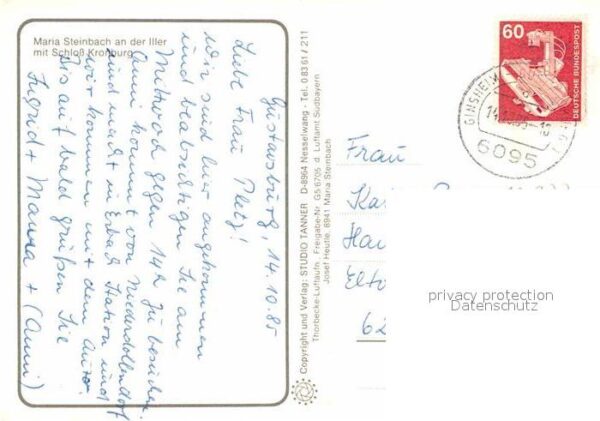 Maria Steinbach an der Iller
mit Schloß Kronburg
Gustavsburg, 14.10.85
Liebe Frau Pletz!
Wir sind hier angekommen
und beabsichtigen Sie am
Mittwoch gegen 14h zu besuchen.
Anni kommt von Niederdollendorf
und macht in Erbach Station und
wir kommen mit dem Auto.
Bis auf bald grüßen Sie
Ingrid + Mama + (Anni)
Copyright und Verlag: STUDIO TANNER D-8964 Nesselwang - Tel. 0 83 61 / 211
Thorbecke-Luftaufn. Freigabe-Nr. G5/6705 d. Luftamt Südbayern
Josef Heutle, 8941 Maria Steinbach
60
DEUTSCHE BUNDESPOST
GINSHEIM
6095
Frau
Ka
Ha
Eltv
62
privacy protection
Datenschutz